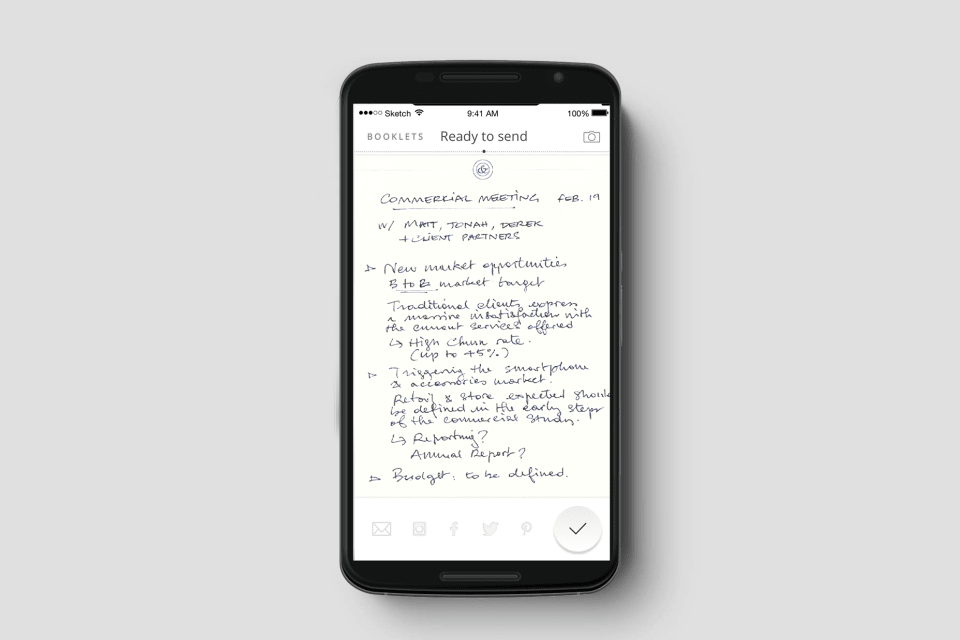 Sketch 9:41 AM 100%
BOOKLETS Ready to send
&
COMMERCIAL MEETING FEB. 19
W/ MATT, JONAH, DEREK
+ CLIENT PARTNERS
New market opportunities
B to B market target
Traditional clients express
a massive insatisfaction with
the current services offered
↳ High Churn rate.
(up to 45%)
Triggering the smartphone
& accessories market.
Retail & store expected should
be defined in the early steps
of the commercial study.
↳ Reporting?
Annual Report?
Budget: to be defined.